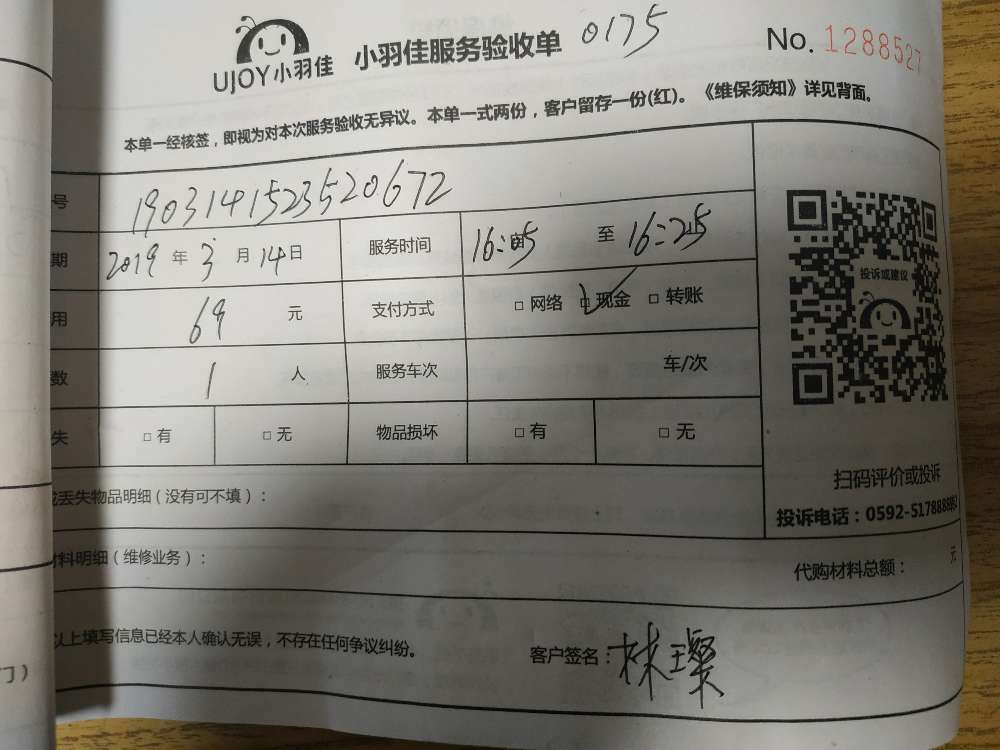 UJOY小羽佳 小羽佳服务验收单 0175 No. 1288527
本单一经核签，即视为对本次服务验收无异议。本单一式两份，客户留存一份(红)。《维保须知》详见背面。
号 1903141523520672
期 2019 年 3 月 14 日 服务时间 16:05 至 16:25
投诉或建议
用 69 元 支付方式 □ 网络 ☑ 现金 □ 转账
数 1 人 服务车次 车/次
失 □ 有 □ 无 物品损坏 □ 有 □ 无
扫码评价或投诉
丢失物品明细（没有可不填）：
投诉电话：0592-5178888
材料明细（维修业务）： 代购材料总额： 元
以上填写信息已经本人确认无误，不存在任何争议纠纷。 客户签名：林璨
门）